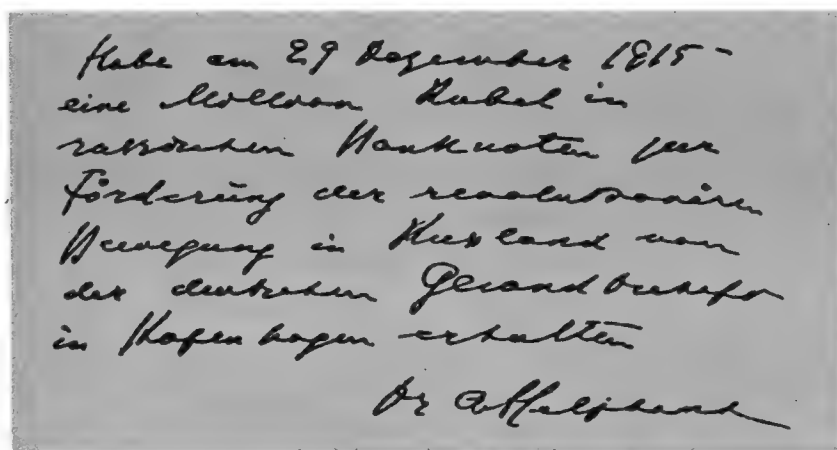 Habe am 29 Dezember 1915 -
eine Million Rubel in
russischen Banknoten zur
Förderung der revolutionären
Bewegung in Russland von
der deutschen Gesandtschaft
in Kopenhagen erhalten
Dr A Helphand